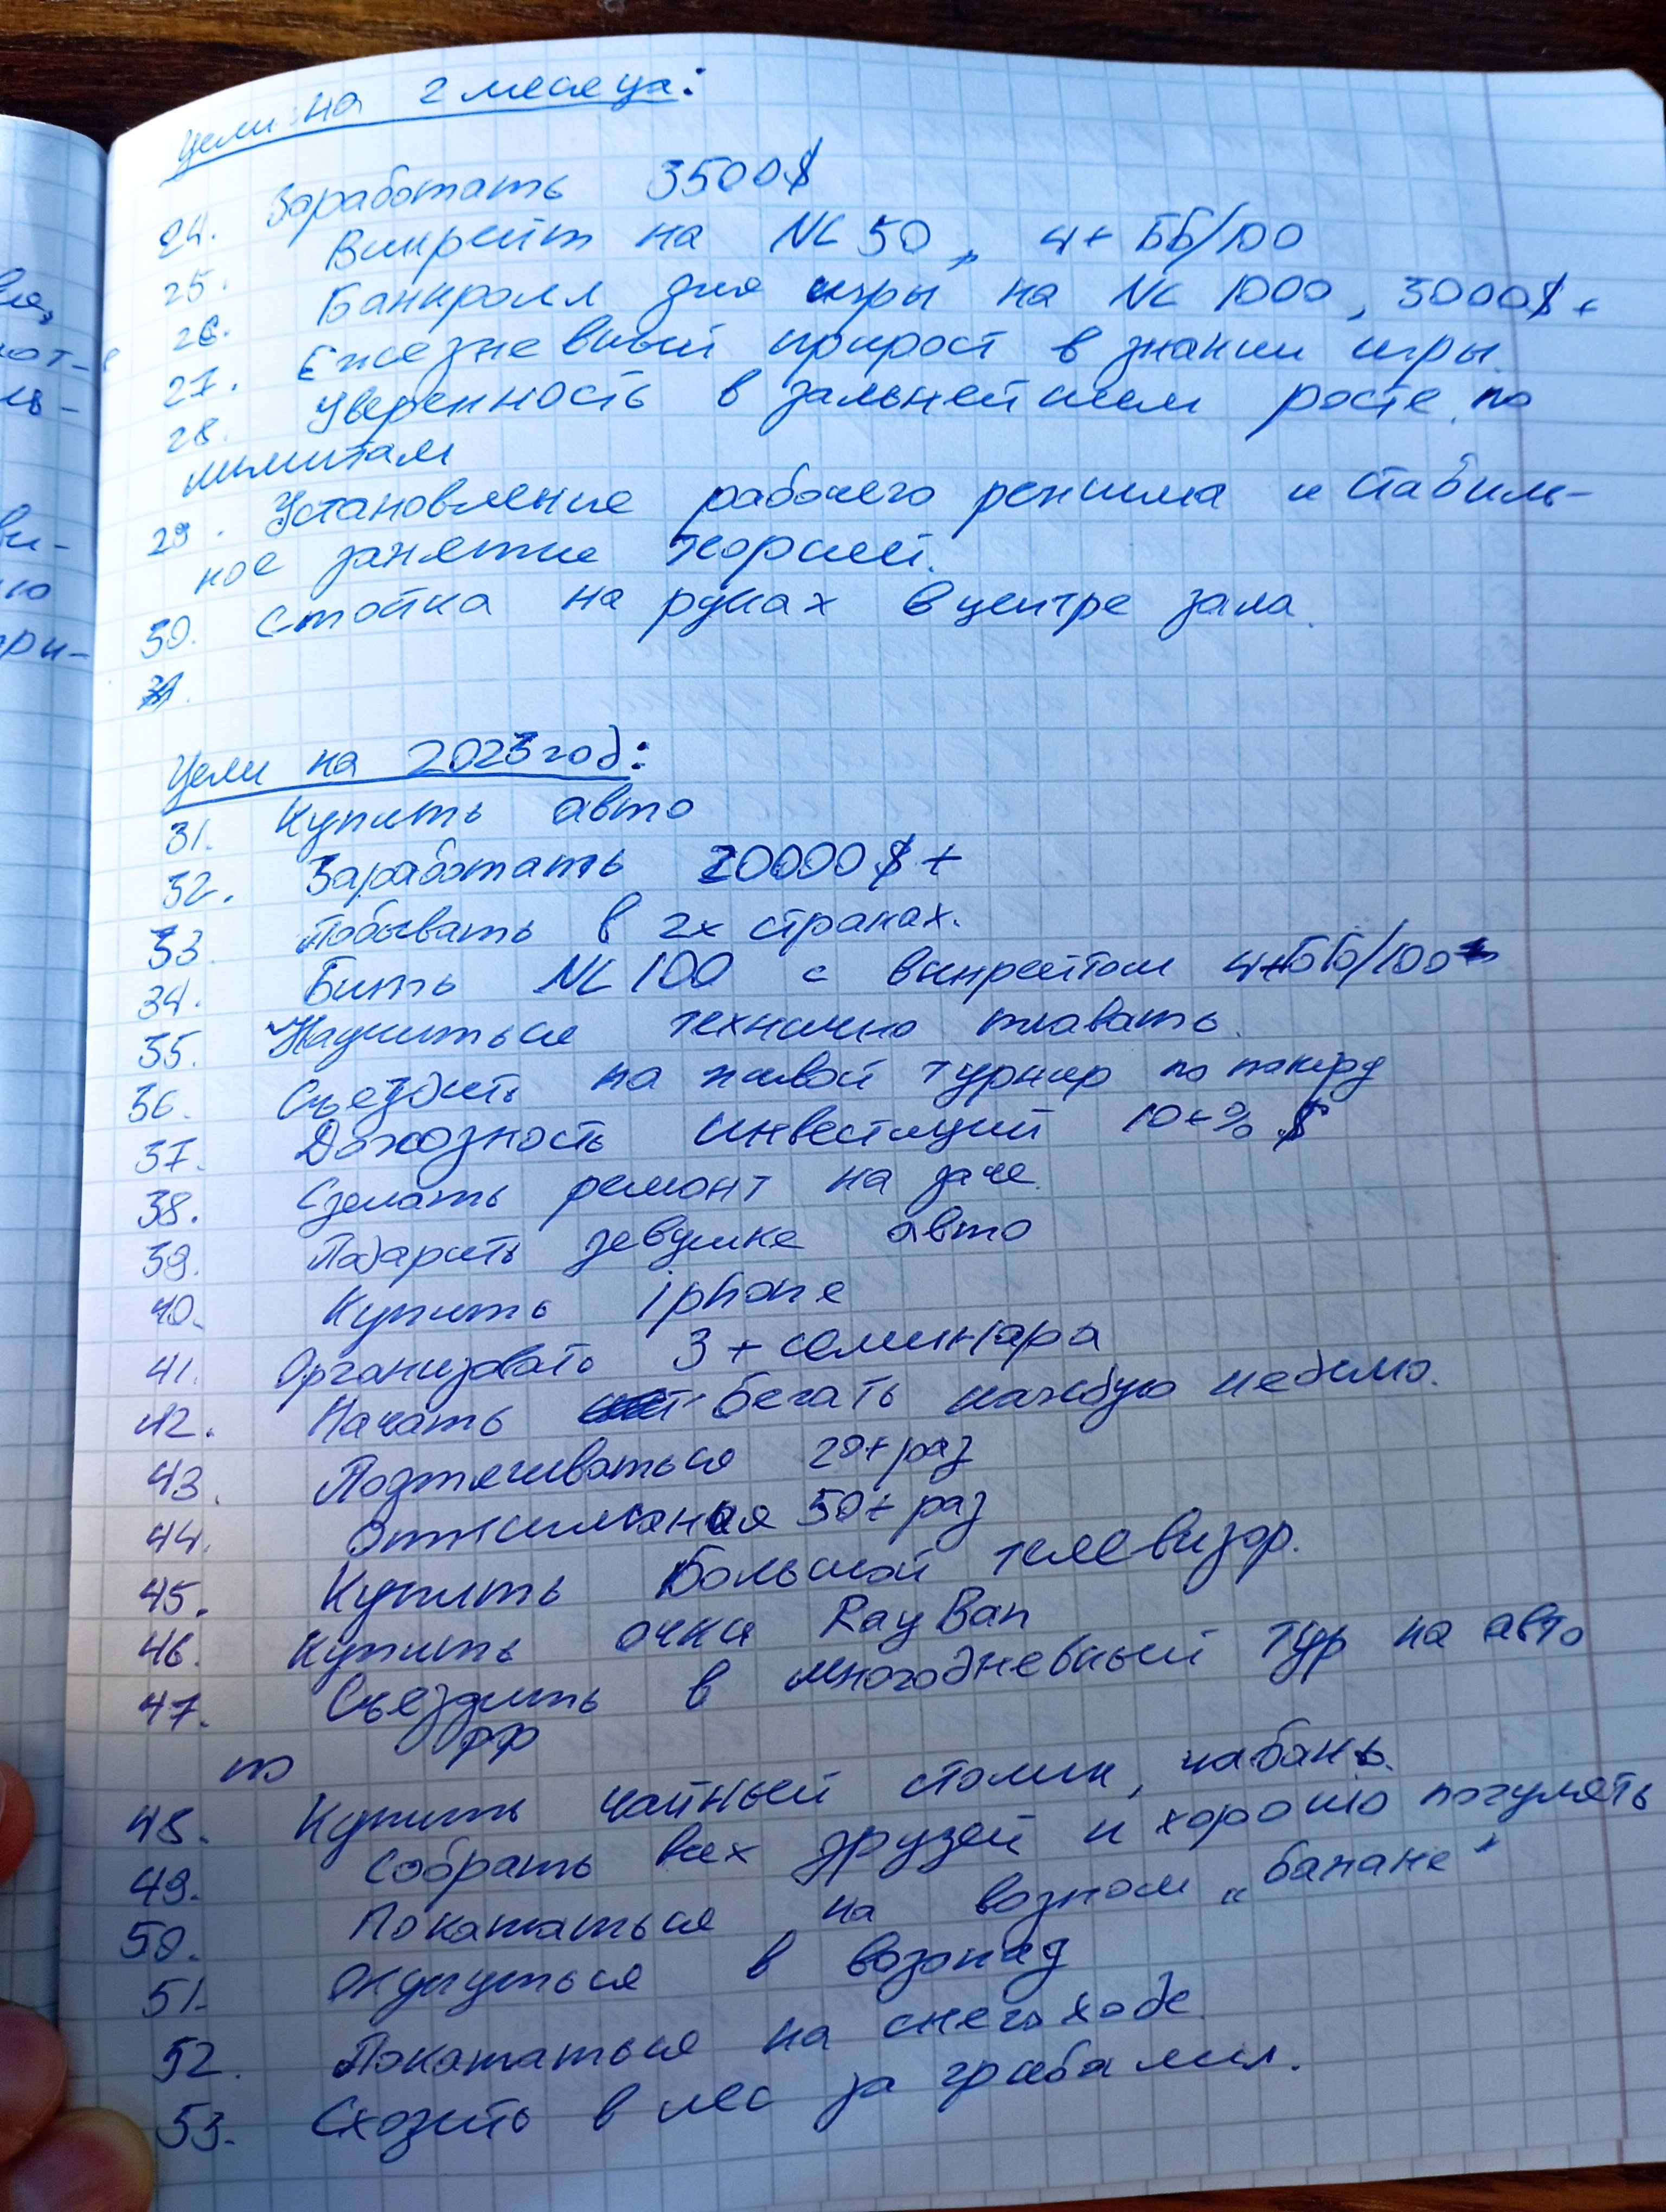 Цели на 2 месяца:
24. Заработать 3500$
25. Винрейт на NL 50, 4+ ББ/100
26. Банкролл для игры на NL 1000, 3000$+
27. Ежедневный прирост в знании игры.
28. Уверенность в дальнейшем росте по
лимитам
29. Установление рабочего режима и стабиль-
ное занятие теорией.
30. Стойка на руках в центре зала.
Цели на 2023 год:
31. Купить авто
32. Заработать 20000$+
33. Побывать в 2х странах.
34. Бить NL 100 с винрейтом 4+ББ/100
35. Научиться технично плавать.
36. Съездить на живой турнир по покеру
37. Доходность инвестиций 10+% $
38. Сделать ремонт на даче.
39. Подарить девушке авто
40. Купить iphone
41. Организовать 3+ семинара
42. Начать бегать каждую неделю.
43. Подтягиваться 20+ раз
44. Отжимания 50+ раз
45. Купить большой телевизор.
46. Купить очки Ray Ban
47. Съездить в многодневный тур на авто
по РФ
48. Купить чайный столик, чабань.
49. Собрать всех друзей и хорошо погулять
50. Покататься на водном „банане"
51. Окунуться в водопад
52. Покататься на снегоходе.
53. Сходить в лес за грибами.